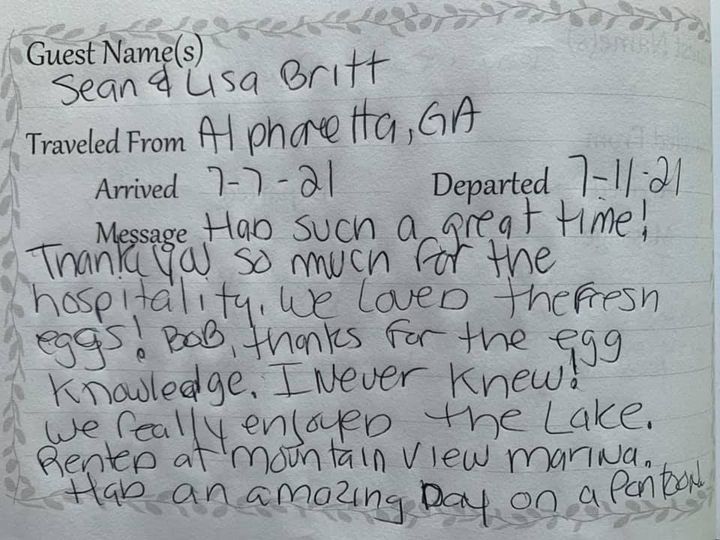 Guest Name(s)
Sean & Lisa Britt
Traveled From Alpharetta, GA
Arrived 7-7-21 Departed 7-11-21
Message Had such a great time!
Thank you so much for the
hospitality. We loved the fresh
eggs! Bob, thanks for the egg
knowledge. I Never knew!
We really enjoyed the Lake.
Rented at mountain view marina.
Had an amazing Day on a Pontoon